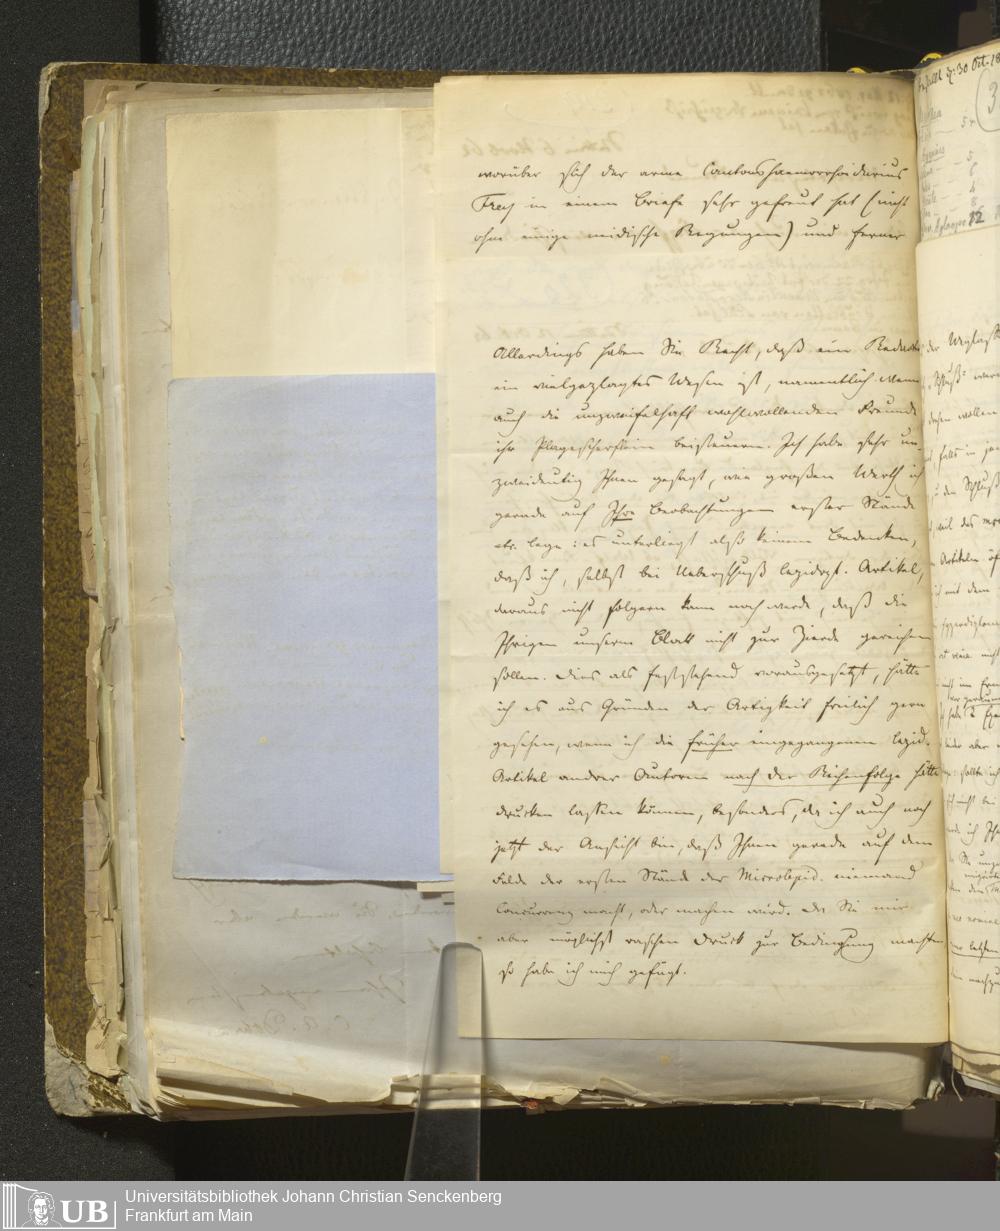 worüber sich der arme Cantonshaemorrhoidarius
Frey in einem Briefe sehr gefreut hat (nicht
ohne einige neidische Regungen) und ferner
Allerdings haben Sie Recht, daß ein Redacteur
ein vielgeplagtes Wesen ist, namentlich wenn
auch die unzweifelhaft wohlwollenden Freunde
ihr Plagescherflein beisteuern. Ich habe sehr un-
zweideutig Ihnen gesagt, wie großen Werth ich
gerade auf Ihre Beobachtungen erster Stände
etc. lege: es unterliegt also keinem Bedenken,
daß ich, selbst bei Ueberschuß lepidopt. Artikel,
daraus nicht folgern kann noch werde, daß die
Ihrigen unserm Blatt nicht zur Zierde gereichen
sollen. Dies als feststehend vorausgesetzt, hätte
ich es aus Gründen der Artigkeit freilich gern
gesehen, wenn ich die früher eingegangenen lepid.
Artikel andrer Autoren nach der Reihenfolge hätte
drucken lassen können, besonders, da ich auch noch
jetzt der Ansicht bin, daß Ihnen gerade auf dem
Felde der ersten Stände der Microlepid. niemand
Concurrenz macht, oder machen wird. Da Sie mir
aber möglichst raschen Druck zur Bedingung machten
so habe ich mich gefügt.
30 Oct. 18
12
UB
Universitätsbibliothek Johann Christian Senckenberg
Frankfurt am Main